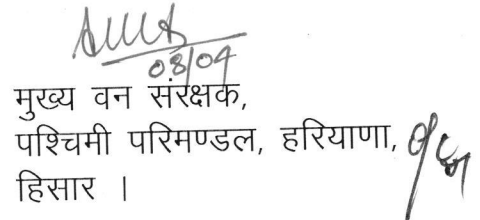 08/04
मुख्य वन संरक्षक,
पश्चिमी परिमण्डल, हरियाणा,
हिसार ।